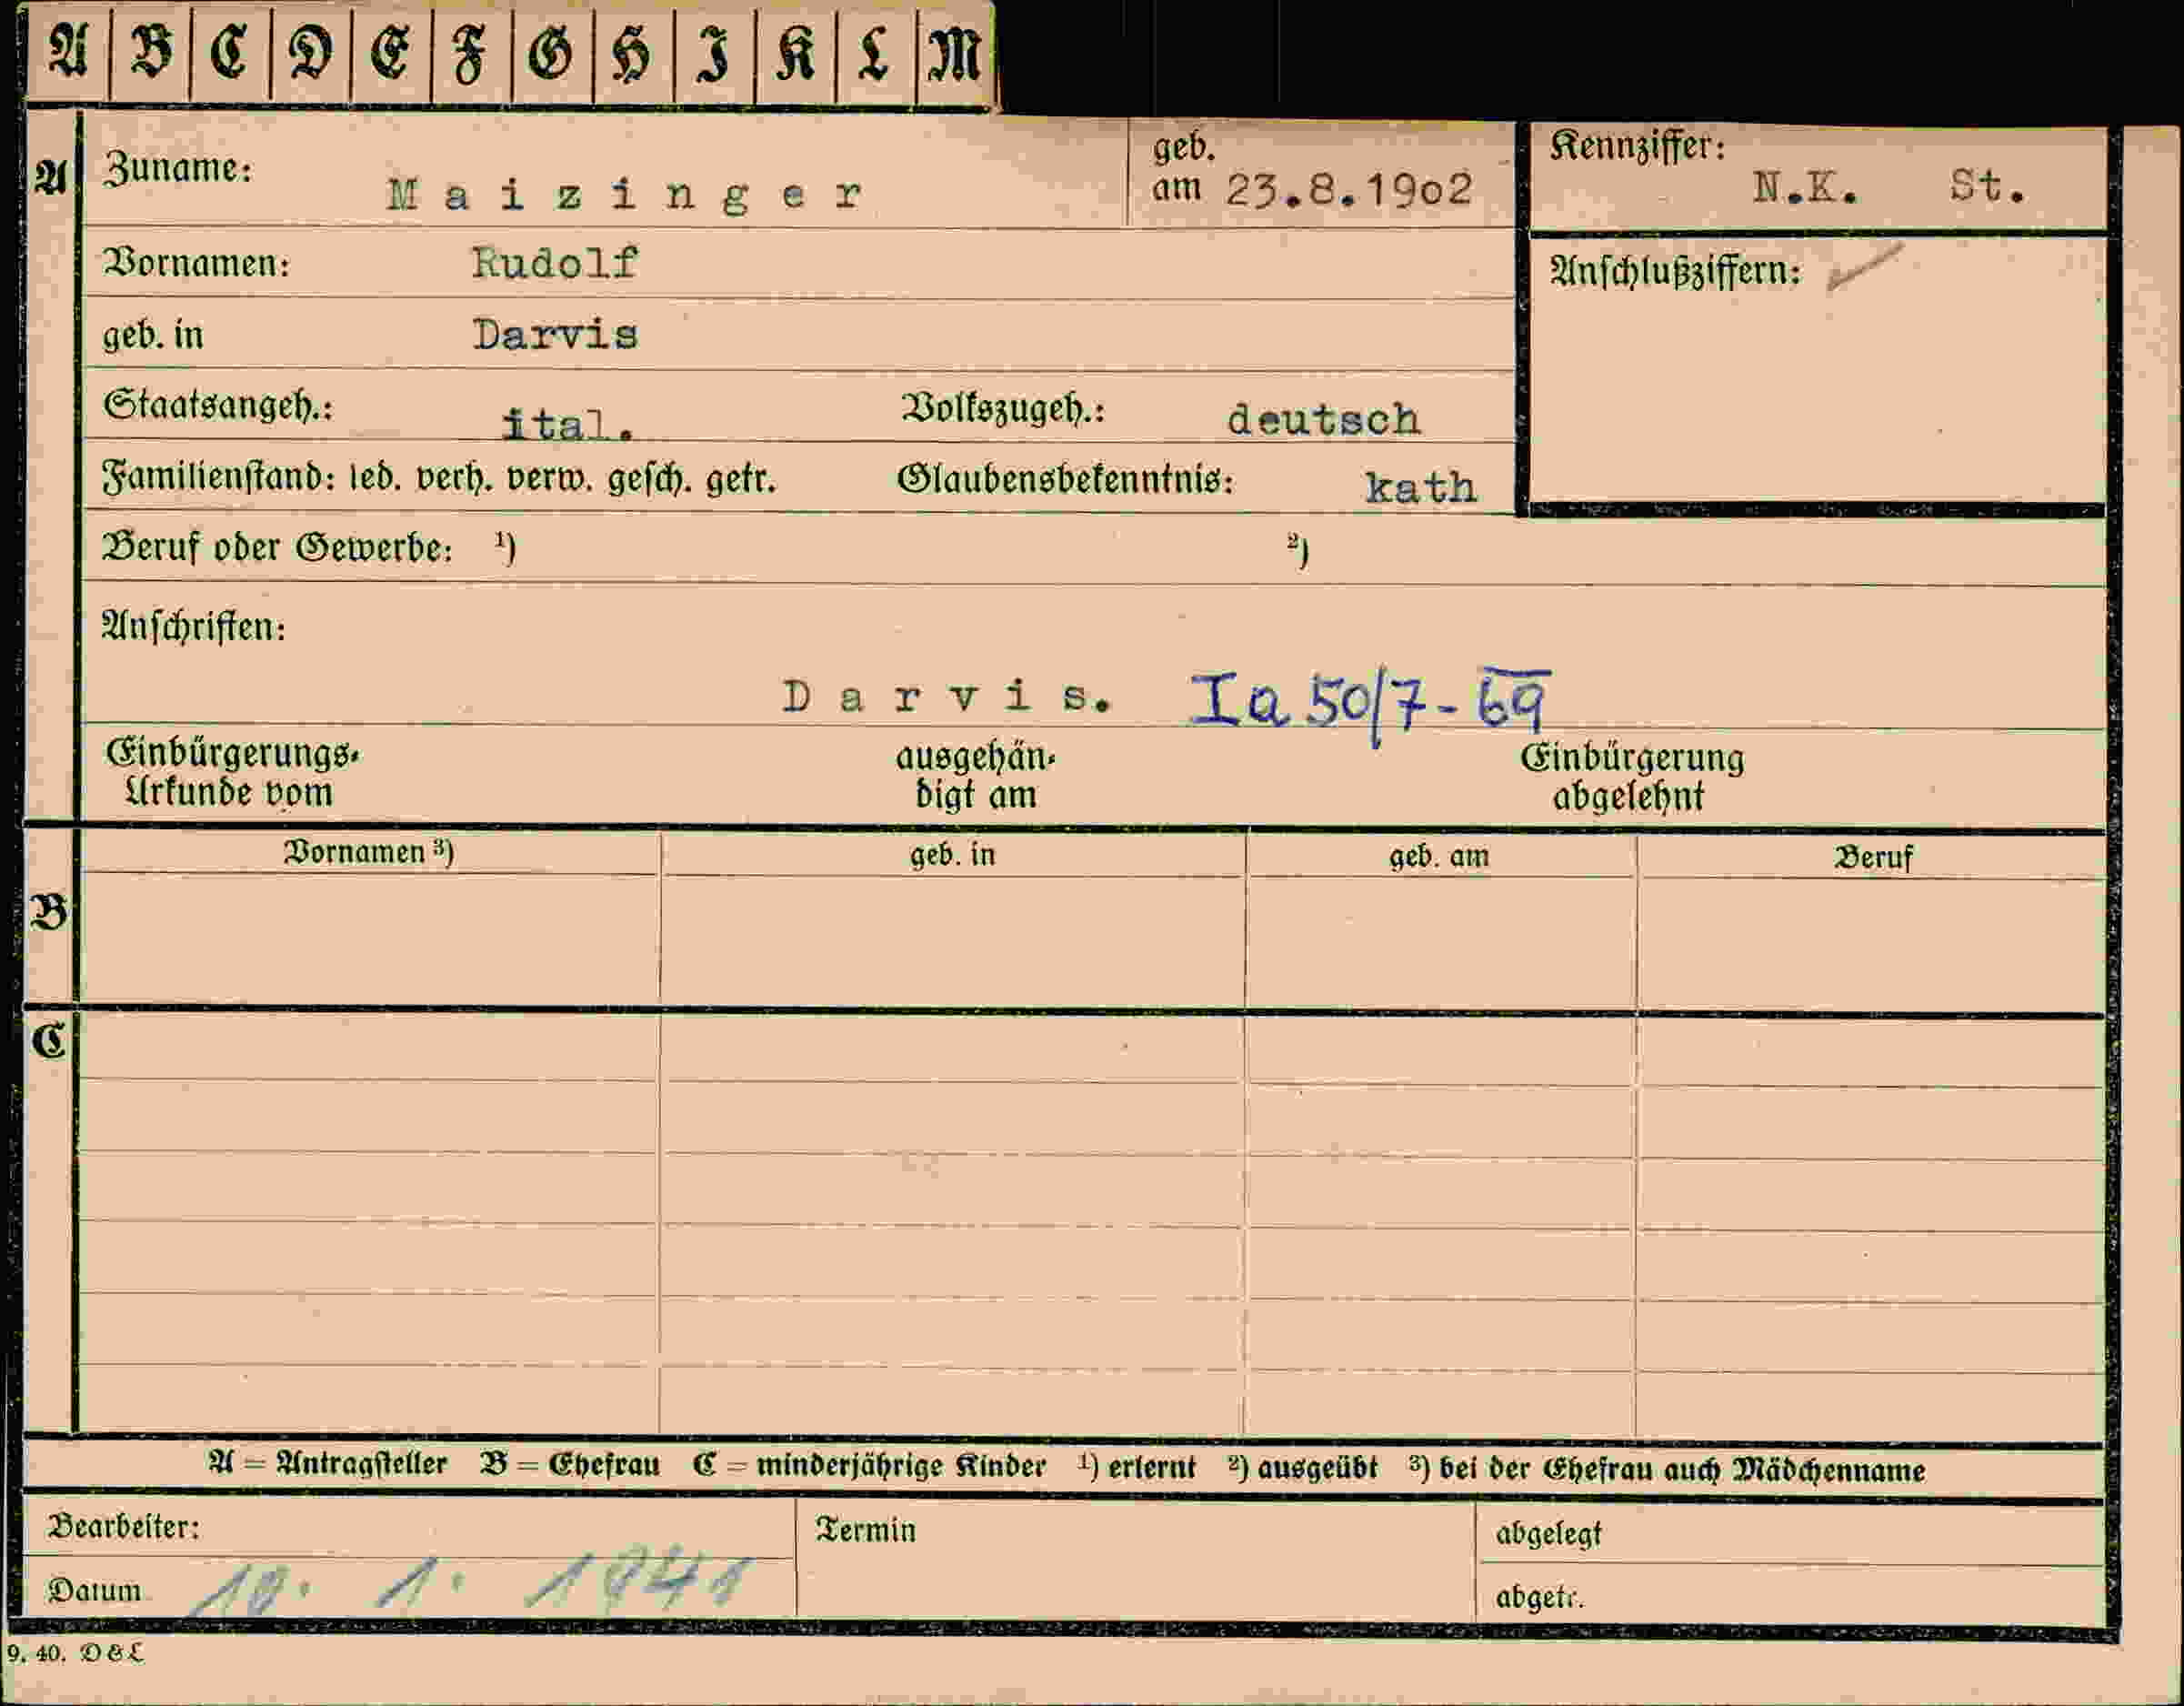 A B C D E F G H I K L M
A Zuname: Maizinger geb. am 23.8.1902 Kennziffer: N.K. St.
Vornamen: Rudolf Anschlußziffern:
geb. in Darvis
Staatsangeh.: ital. Volkszugeh.: deutsch
Familienstand: led. verh. verw. gesch. getr. Glaubensbekenntnis: kath
Beruf oder Gewerbe: ¹) ²)
Anschriften:
Darvis. Ia 50/7-69
Einbürgerungs- ausgehän- Einbürgerung
Urkunde vom digt am abgelehnt
Vornamen ³) geb. in geb. am Beruf
B
C
A = Antragsteller B = Ehefrau C = minderjährige Kinder ¹) erlernt ²) ausgeübt ³) bei der Ehefrau auch Mädchenname
Bearbeiter: Termin abgelegt
Datum 10. 1. 1941 abgetr.
9. 40. D & L